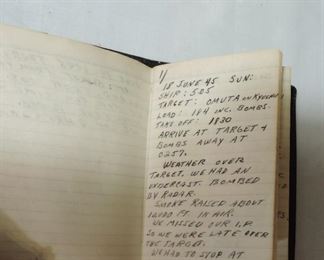 1/
18 JUNE 45 SUN:
SHIP: 505
TARGET: OMUTA ON KYUSHU
LOAD: 184 INC. BOMBS.
TAKE OFF: 1830
ARRIVE AT TARGET &
BOMBS AWAY AT
0257.
WEATHER OVER
TARGET. WE HAD AN
UNDERCAST. BOMBED
BY RADAR.
SMOKE RAISED ABOUT
FT. IN AIR.
WE MISSED OUR I.P
SO WE WERE LATE OVER
THE TARGET.
WE HAD TO STOP AT